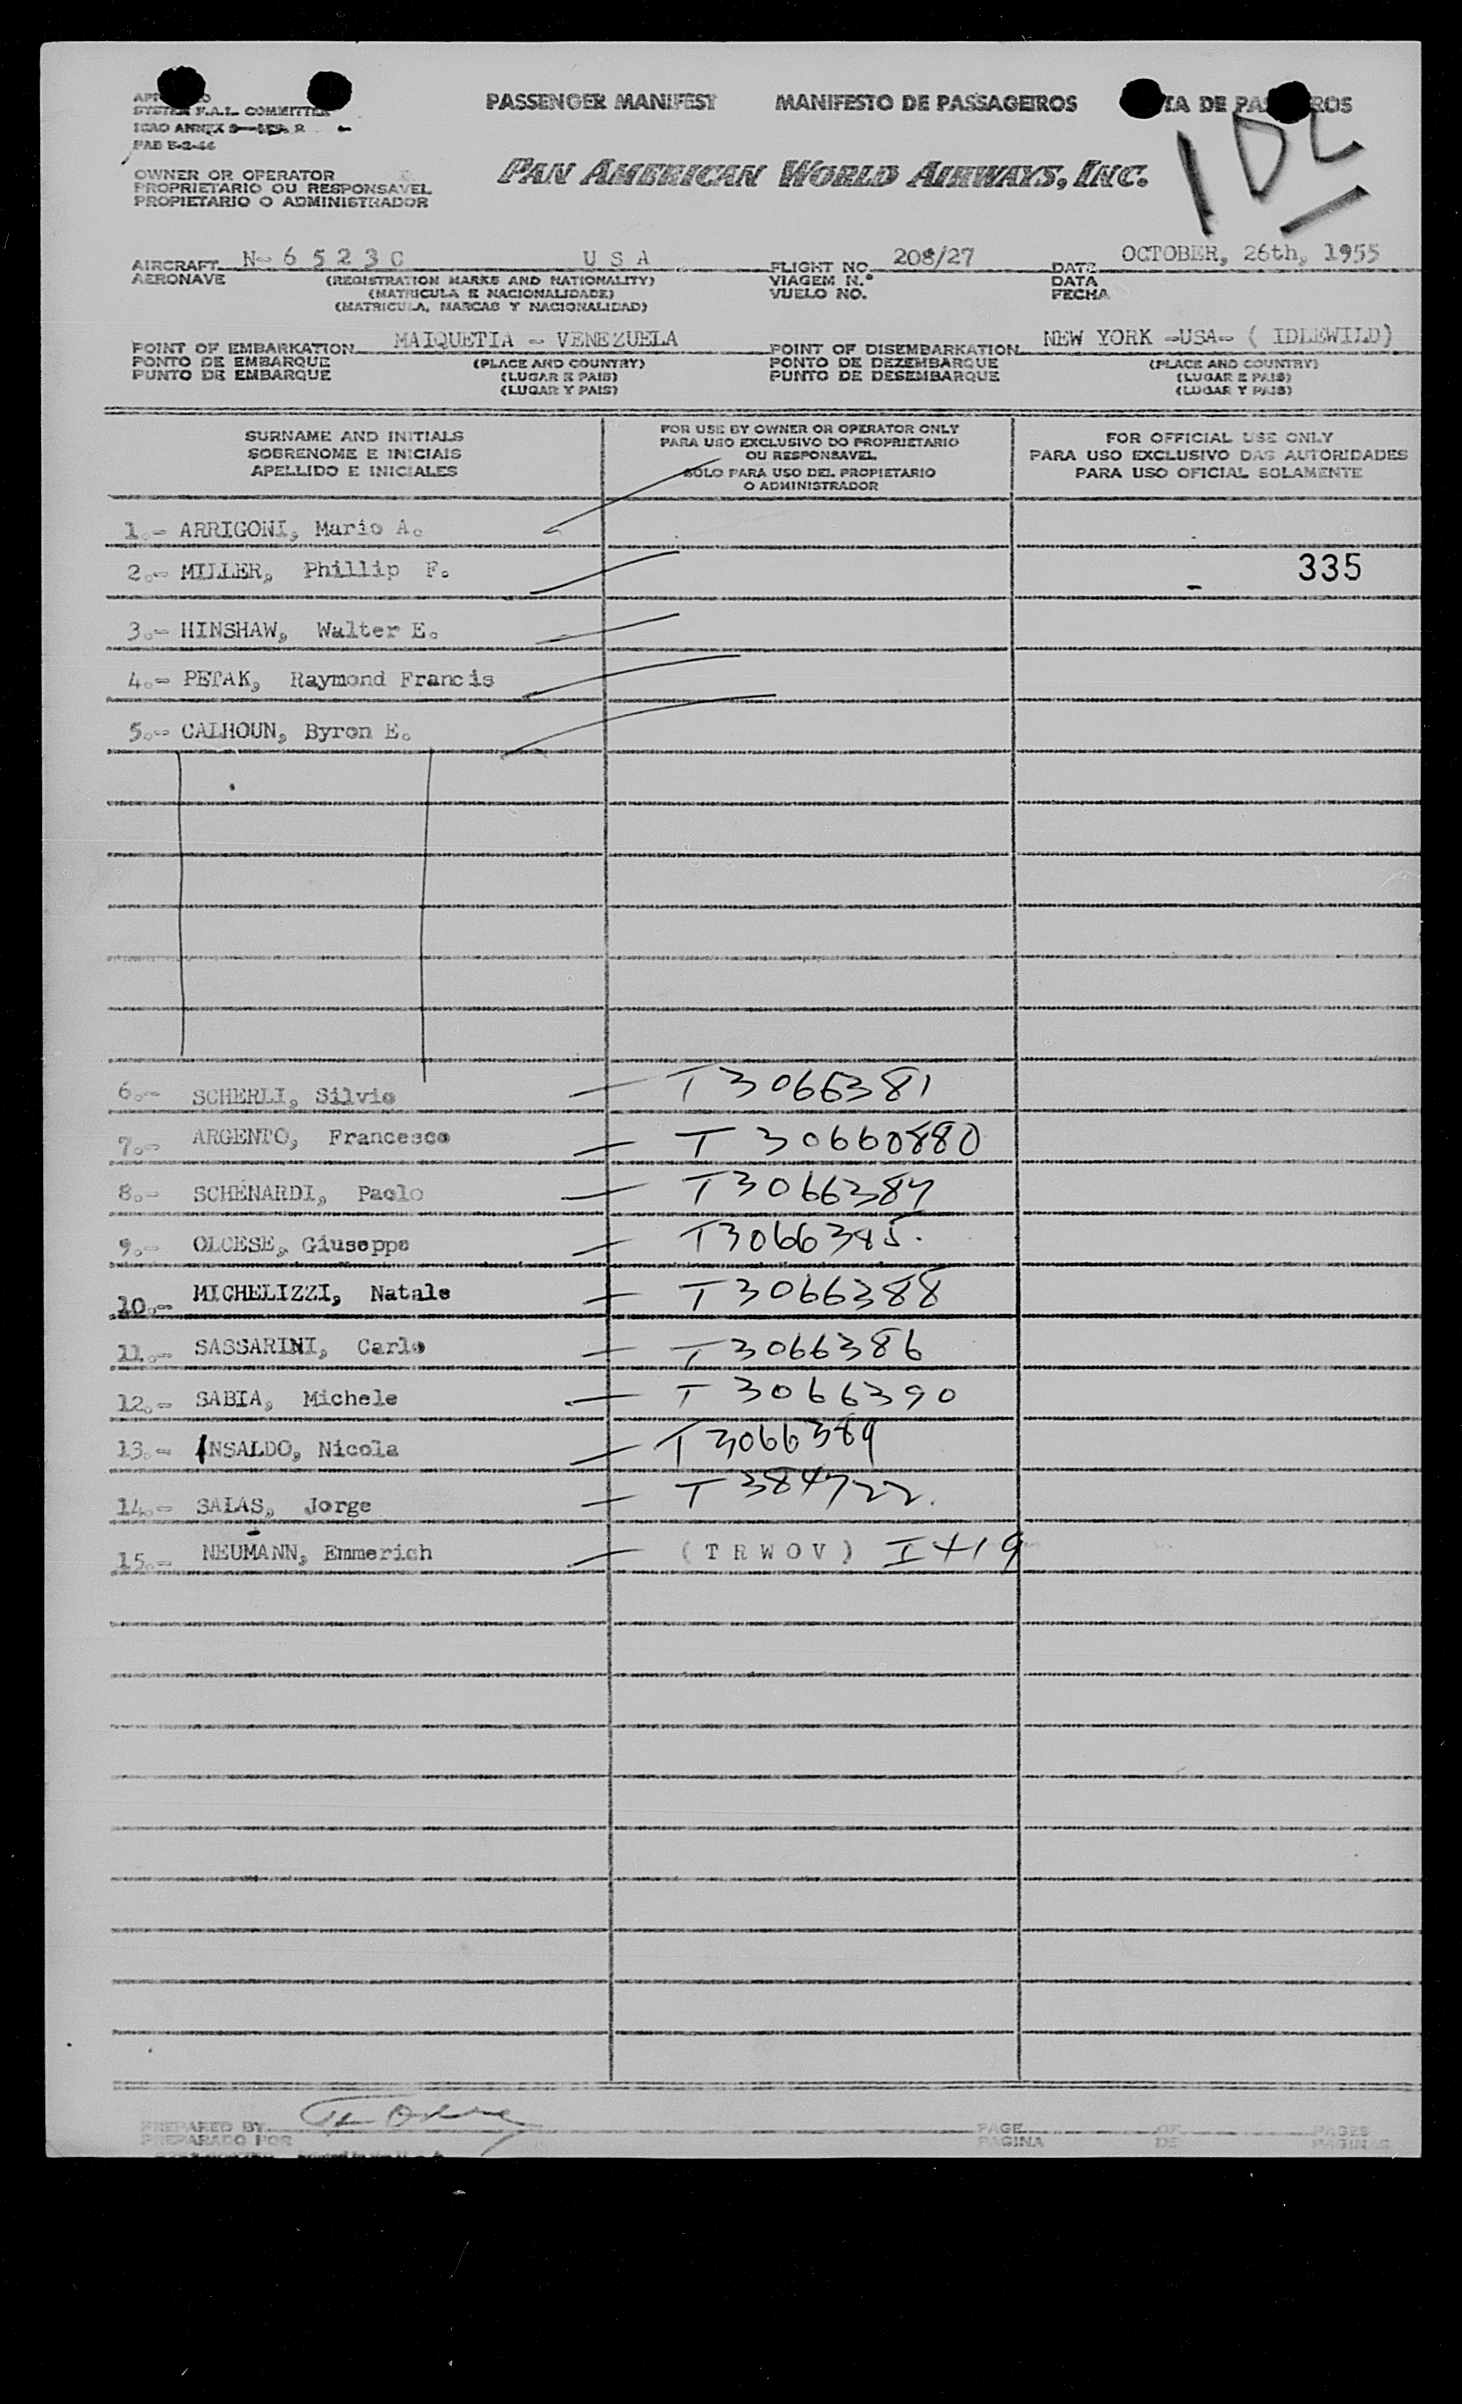 PASSENGER MANIFEST MANIFESTO DE PASSAGEIROS DE
SYSTEM F.A.L. COMMITTEE
ICAO ANNEX 9
PAD 5-2-46
IDL
OWNER OR OPERATOR
PROPRIETARIO OU RESPONSAVEL
PROPIETARIO O ADMINISTRADOR
PAN AMERICAN WORLD AIRWAYS, INC.
AIRCRAFT N- 6 5 2 3 C U S A FLIGHT NO. 208/27 DATE OCTOBER, 26th, 1955
AERONAVE (REGISTRATION MARKS AND NATIONALITY) VIAGEM N.º DATA
(MATRICULA E NACIONALIDADE) VUELO NO. FECHA
(MATRICULA, MARCAS Y NACIONALIDAD)
POINT OF EMBARKATION MAIQUETIA - VENEZUELA POINT OF DISEMBARKATION NEW YORK -USA- ( IDLEWILD)
PONTO DE EMBARQUE (PLACE AND COUNTRY) PONTO DE DEZEMBARQUE (PLACE AND COUNTRY)
PUNTO DE EMBARQUE (LUGAR E PAIS) PUNTO DE DESEMBARQUE (LUGAR E PAIS)
(LUGAR Y PAIS) (LUGAR Y PAIS)
SURNAME AND INITIALS
SOBRENOME E INICIAIS
APELLIDO E INICIALES
FOR USE BY OWNER OR OPERATOR ONLY
PARA USO EXCLUSIVO DO PROPRIETARIO
OU RESPONSAVEL
SOLO PARA USO DEL PROPIETARIO
O ADMINISTRADOR
FOR OFFICIAL USE ONLY
PARA USO EXCLUSIVO DAS AUTORIDADES
PARA USO OFICIAL SOLAMENTE
1.- ARRIGONI, Mario A.
2.- MILLER, Phillip F. 335
3.- HINSHAW, Walter E.
4.- PETAK, Raymond Francis
5.- CALHOUN, Byron E.
6.- SCHERLI, Silvio - T3066381
7.- ARGENTO, Francesco - T 30660880
8.- SCHENARDI, Paolo - T3066387
9.- OLCESE, Giuseppe - T3066385.
10.- MICHELIZZI, Natale - T3066388
11.- SASSARINI, Carlo - T3066386
12.- SABIA, Michele - T3066390
13.- ANSALDO, Nicola - T3066389
14.- SALAS, Jorge - T384722.
15.- NEUMANN, Emmerich - ( T R W O V ) I 419
PREPARED BY PAGE OF PAGES
PREPARADO POR PAGINA DE PAGINAS